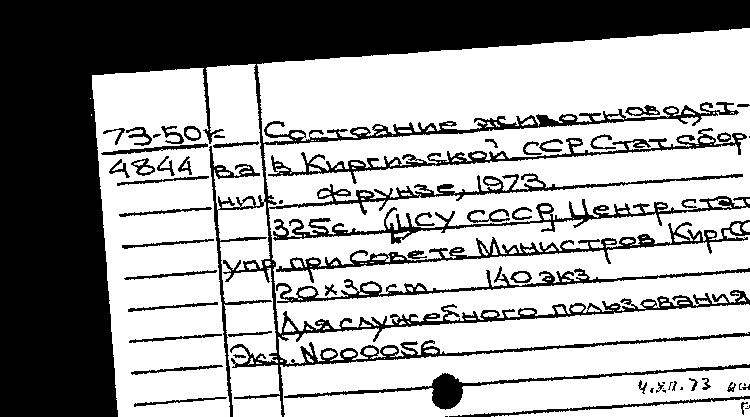 73-50к Состояние животноводст-
4844 ва в Киргизской ССР. Стат. сбор-
ник. Фрунзе, 1973.
325с. (ЦСУ СССР. Центр. стат.
упр. при Совете Министров КиргССР
20×30cm. 140 экз.
Для служебного пользования
Экз. N000056
4.XII.73